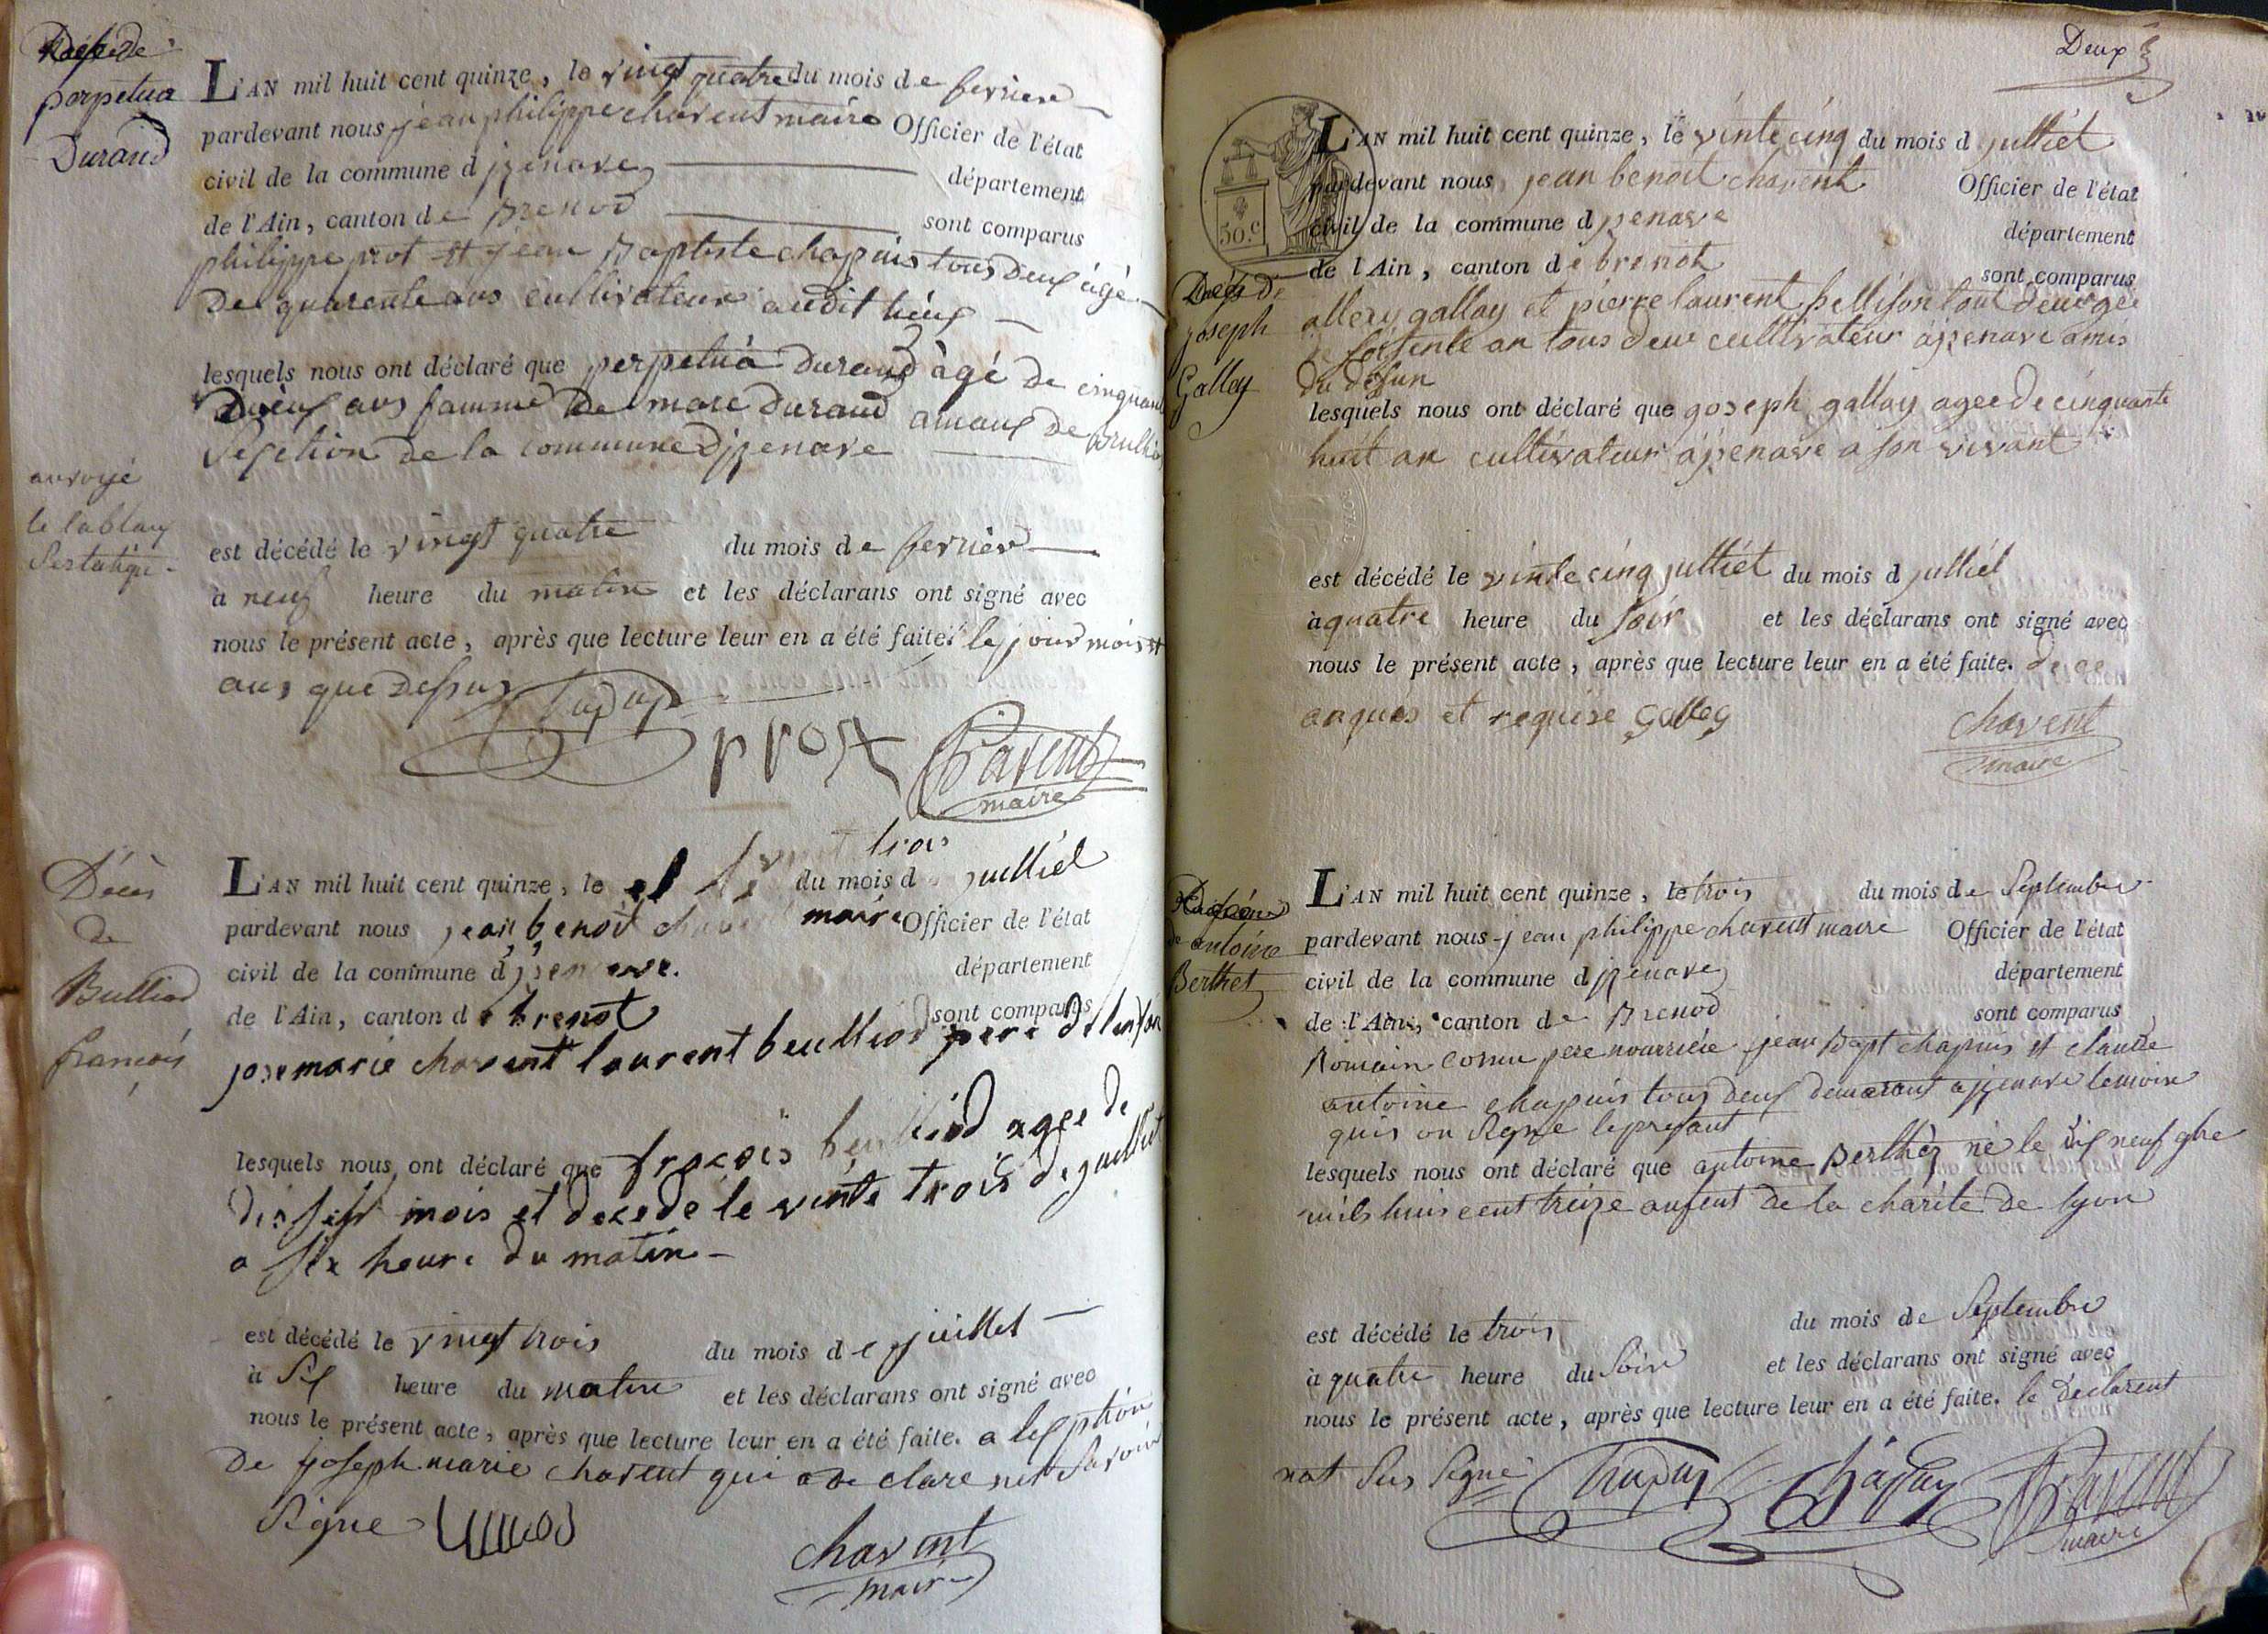 Décé de
perpetua
Durand
L'AN mil huit cent quinze, le vingt quatre du mois de fevrier
pardevant nous jean philippe chavent maire Officier de l'état
civil de la commune d jzenave
département
de l'Ain, canton de Brenod
sont comparus
philippe prot et jean Baptiste chapuis tous deux âgé
De quarente ans cullivateur audit lieux
lesquels nous ont déclaré que perpetua durand àgé de cinquante
ans famme de marc durand
Section de la commune Djzenave
anvoyé
le tablaux
est décédé le vingt quatre du mois de fevrier
à neuf heure du matin et les déclarans ont signé avec
nous le présent acte, après que lecture leur en a été faite. le jour mois et
ans que Dessus
prost
Chavent
maire
Décès
de
Bulliod
francois
trois
L'AN mil huit cent quinze, le du mois d juilliet
pardevant nous jean benoit chavent maire Officier de l'état
civil de la commune d jzenave.
département
de l'Ain, canton de brenot
sont comparus
jose marie chavent laurent beulliod pere de lenfan
lesquels nous ont déclaré que beulliod agee de
mois et decede le vinte trois de
a six heure du matin
est décédé le vingt trois du mois de juillet
à Six heure du matin et les déclarans ont signé avec
nous le présent acte, après que lecture leur en a été faite. a lesption
De joseph marie chavent qui a declare
Signe
chavent
maire
Deux
L'AN mil huit cent quinze, le vinte cinq du mois d julliet
pardevant nous jean benoit chavent Officier de l'état
civil de la commune d jzenave
département
50.c
de l'Ain, canton de brenot
sont comparus
Decés De
joseph
Gallay
allexy gallay et pierre laurent pellison tout deux agée
de soisente an tous deux cultivateur a jzenave amis
du defun
lesquels nous ont déclaré que goseph gallay agee de cinquante
huit an cultivateur a jzenave a son vivant
est décédé le vinte cinq julliet du mois d julliet
à quatre heure du soir et les déclarans ont signé avec
nous le présent acte, après que lecture leur en a été faite. de ce
anquis et requise Galley
chavent
maire
de antoine
Berthet
L'AN mil huit cent quinze, le trois du mois de Septembre
pardevant nous jean philippe chavent maire Officier de l'état
civil de la commune d jzenave
département
de l'Ain, canton de Brenod
sont comparus
Romain cornu pere nourricie jean Bapt chapuis et claude
antoine chapuis tous deux demeurant a jzenave temoins
quis on Signe le presant
lesquels nous ont déclaré que antoine Berthez né le dix neuf gbre
mils huis cent treize anfent de la charité de lyon
est décédé le trois du mois de Septembre
à quatre heure du Soir et les déclarans ont signé avec
nous le présent acte, après que lecture leur en a été faite. le declarent
nat Sus Signé
Chapuy
Chavent
maire